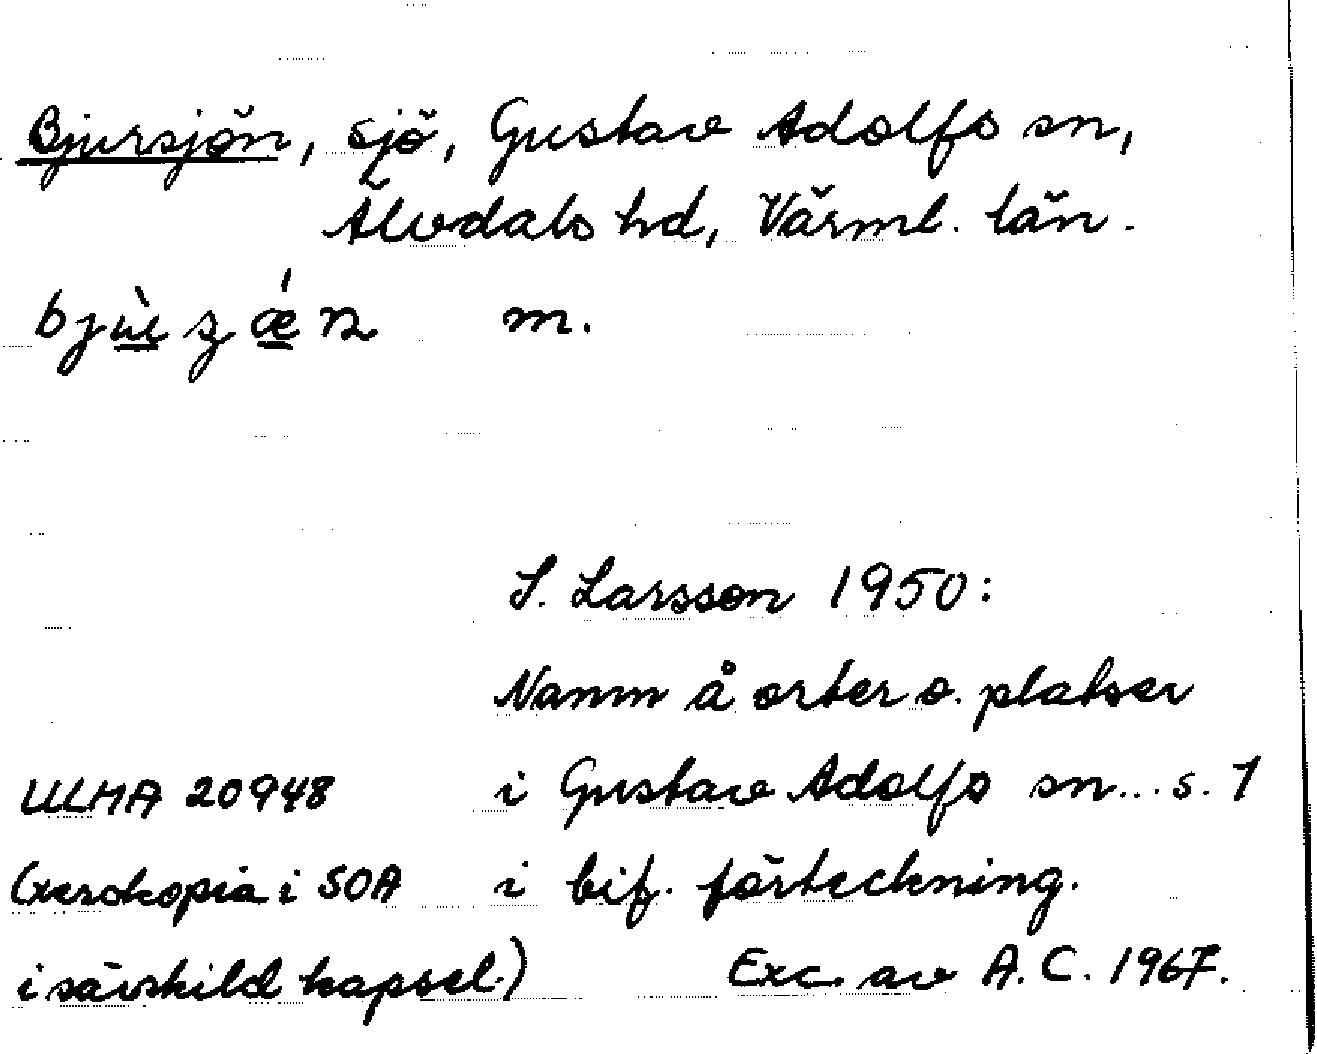 Bjursjön, sjö, Gustav Adolfs sn,
Älvdals hd, Värml. län.
m.
S. Larsson 1950:
Namn å orter o. platser
ULMA 20948 i Gustav Adolfs sn... s. 1
(xerokopia i SOA i bif. förteckning.
i särskild kapsel.) Exc. av A.C. 1967.